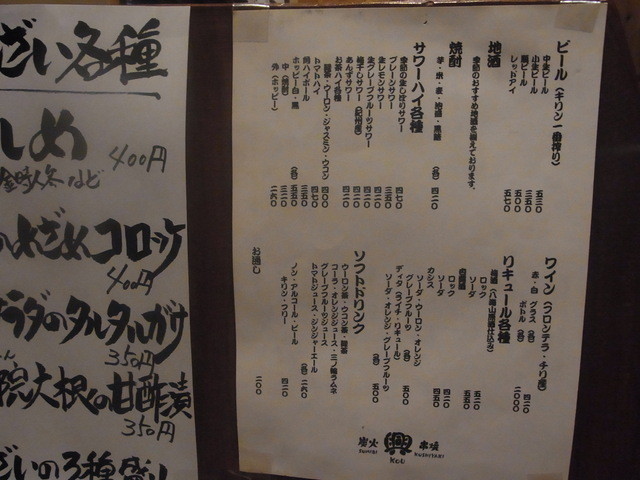 ビール（キリン一番搾り）
中生ビール 五三〇
小生ビール 三五〇
黒ビール 五〇〇
レッドアイ 五七〇
地酒
季節のおすすめ地酒を揃えております。
焼酎
芋・米・麦・泡盛・黒糖 (各) 四二〇
サワーハイ各種
季節の生しぼりサワー 四七〇
プレーンサワー 三五〇
生レモンサワー 四二〇
生グレープフルーツサワー 四二〇
梅干しサワー（紀州産） 四二〇
あんずサワー 四二〇
お茶ハイ各種
緑茶・ウーロン・ジャスミン・ウコン 四〇〇
トマトハイ 四七〇
角ハイボール 三五〇
ホッピー白・黒 (各) 五五〇
中（焼酎） 三二〇
外（ホッピー） 二六〇
ワイン（フロンテラ・チリ産）
赤・白 グラス (各) 四二〇
ボトル (各) 二〇〇〇
リキュール各種
ロック 五二〇
ソーダ 五五〇
ロック 四二〇
ソーダ 四五〇
カシス
ソーダ・ウーロン・オレンジ
グレープフルーツ (各) 五〇〇
ディタ（ライチ・リキュール）
ソーダ・オレンジ・グレープフルーツ
(各) 五〇〇
ソフトドリンク
ウーロン茶・ウコン茶・緑茶
コーラ・オレンジジュース・三ツ矢ラムネ
グレープフルーツジュース
トマトジュース・ジンジャーエール
(各) 二六〇
ノン・アルコール・ビール
キリン・フリー 四二〇
お通し 二〇〇
炭火 興 串焼
SUMIBI KOU KUSHIYAKI
ざい各種
しめ 400円
金時人参など
わざめコロッケ
400円
ラダのタルタルガサ
350円
院大根の甘酢漬
350円
ざいの3種盛り